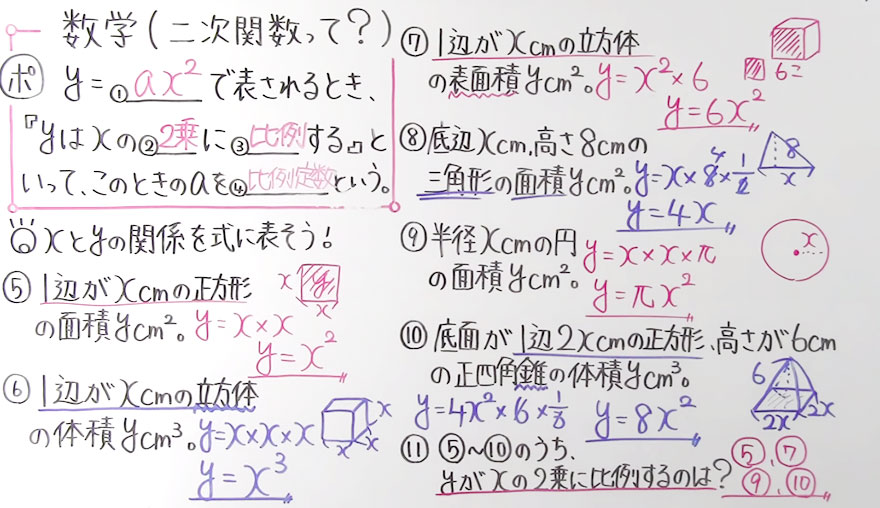 数学(二次関数って?)
ポ y=①ax²で表されるとき、
『yはxの②2乗に③比例する』と
いって、このときのaを④比例定数という。
xとyの関係を式に表そう!
⑤ 1辺がxcmの正方形
の面積ycm²。y=x×x
y=x²
x
y
x
⑥ 1辺がxcmの立方体
の体積ycm³。y=x×x×x
y=x³
x
x
x
⑦ 1辺がxcmの立方体
の表面積ycm²。y=x²×6
y=6x²
6こ
⑧ 底辺xcm,高さ8cmの
三角形の面積ycm²。y=x×8×1/2
4
y=4x
8
x
⑨ 半径xcmの円
の面積ycm²。
y=x×x×π
y=πx²
x
⑩ 底面が1辺2xcmの正方形、高さが6cm
の正四角錐の体積ycm³。
y=4x²×6×1/3
y=8x²
6
2x
2x
⑪ ⑤~⑩のうち、
yがxの2乗に比例するのは?
⑤、⑦
⑨、⑩